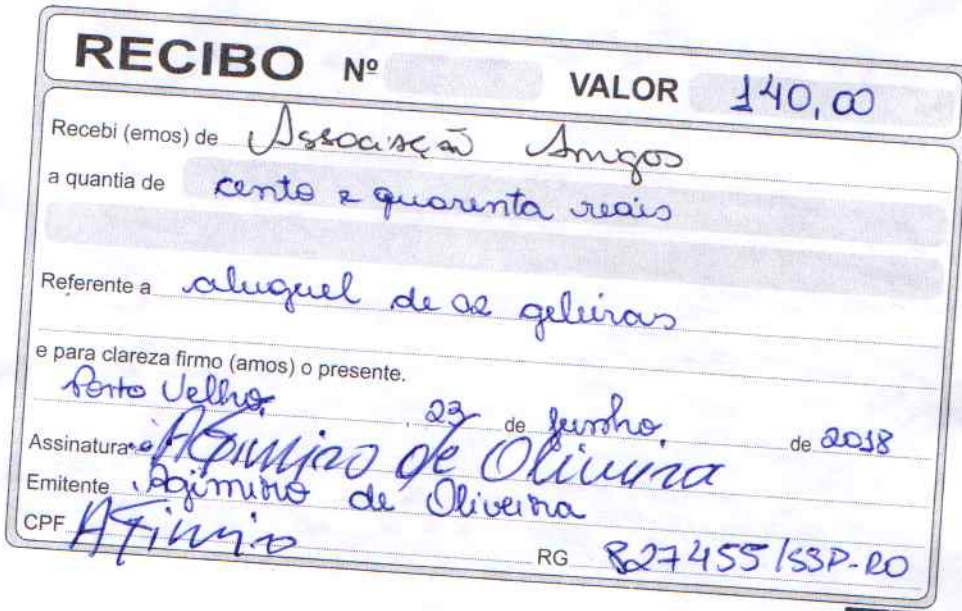 RECIBO Nº VALOR 140,00
Recebi (emos) de Associação Amigos
a quantia de cento e quarenta reais
Referente a aluguel de 02 geleiras
e para clareza firmo (amos) o presente.
Porto Velho, 23 de Junho, de 2018
Assinatura Agimiro de Oliveira
Emitente Agimiro de Oliveira
CPF Agimiro RG 827455/SSP-RO